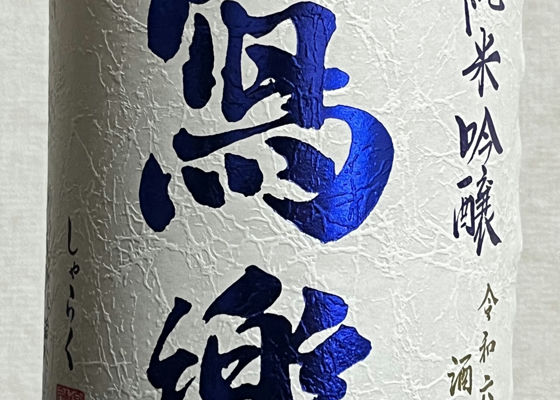 純米吟醸
令和六
酒
冩樂
しゃらく